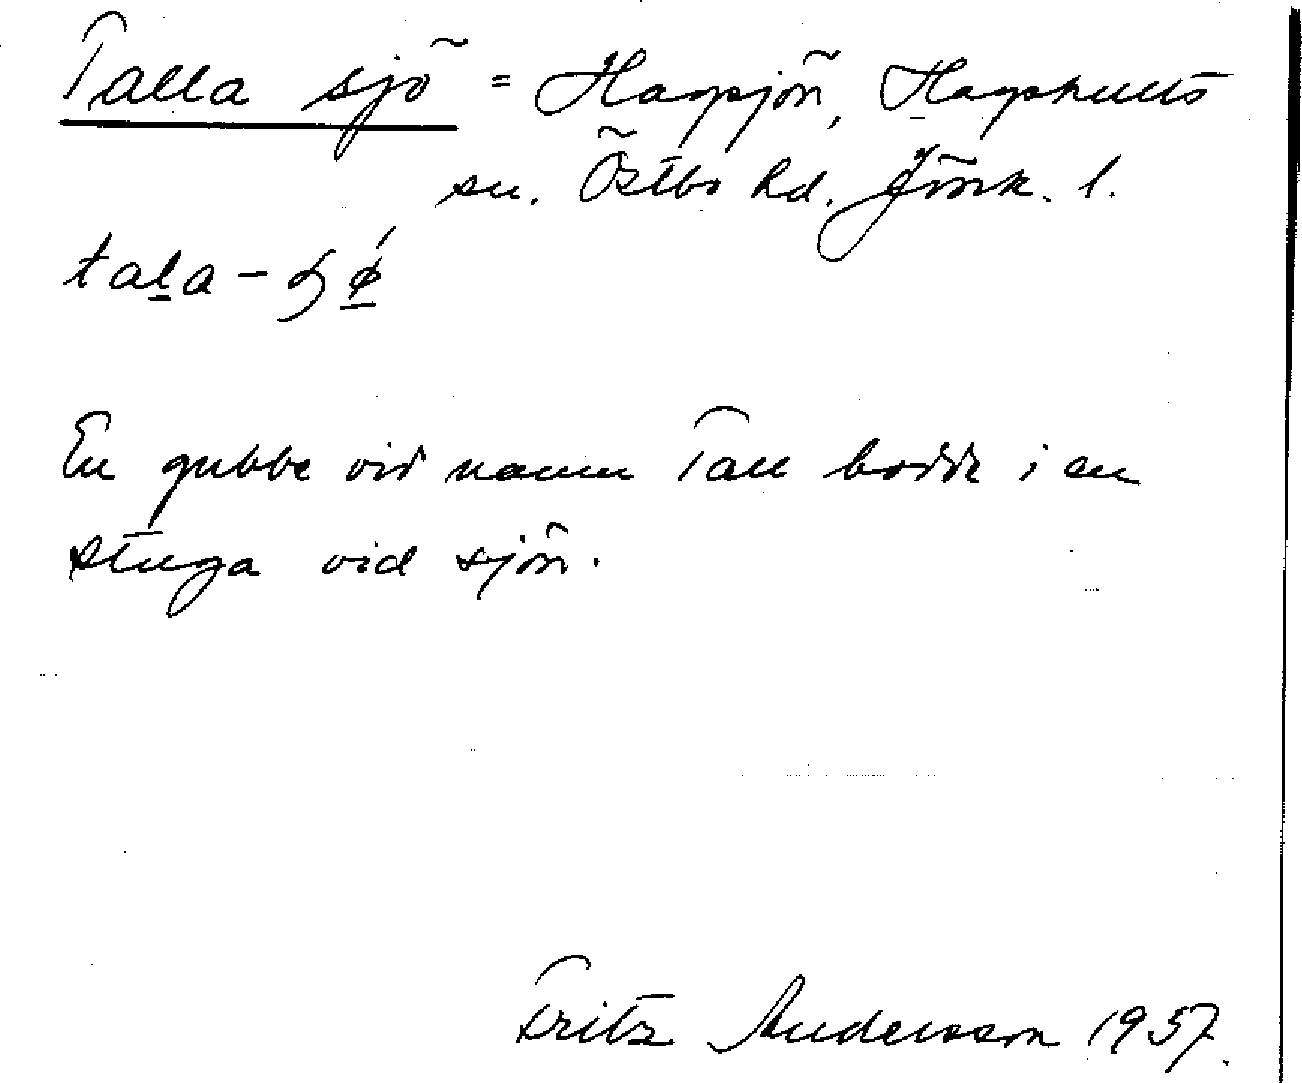 Talla sjö = Hagsjön, Hagshults
sn. Östbo hd. Jönk. l.
tala -
En gubbe vid namn Tall bodde i en
stuga vid sjön.
Fritz Andersson 1957.